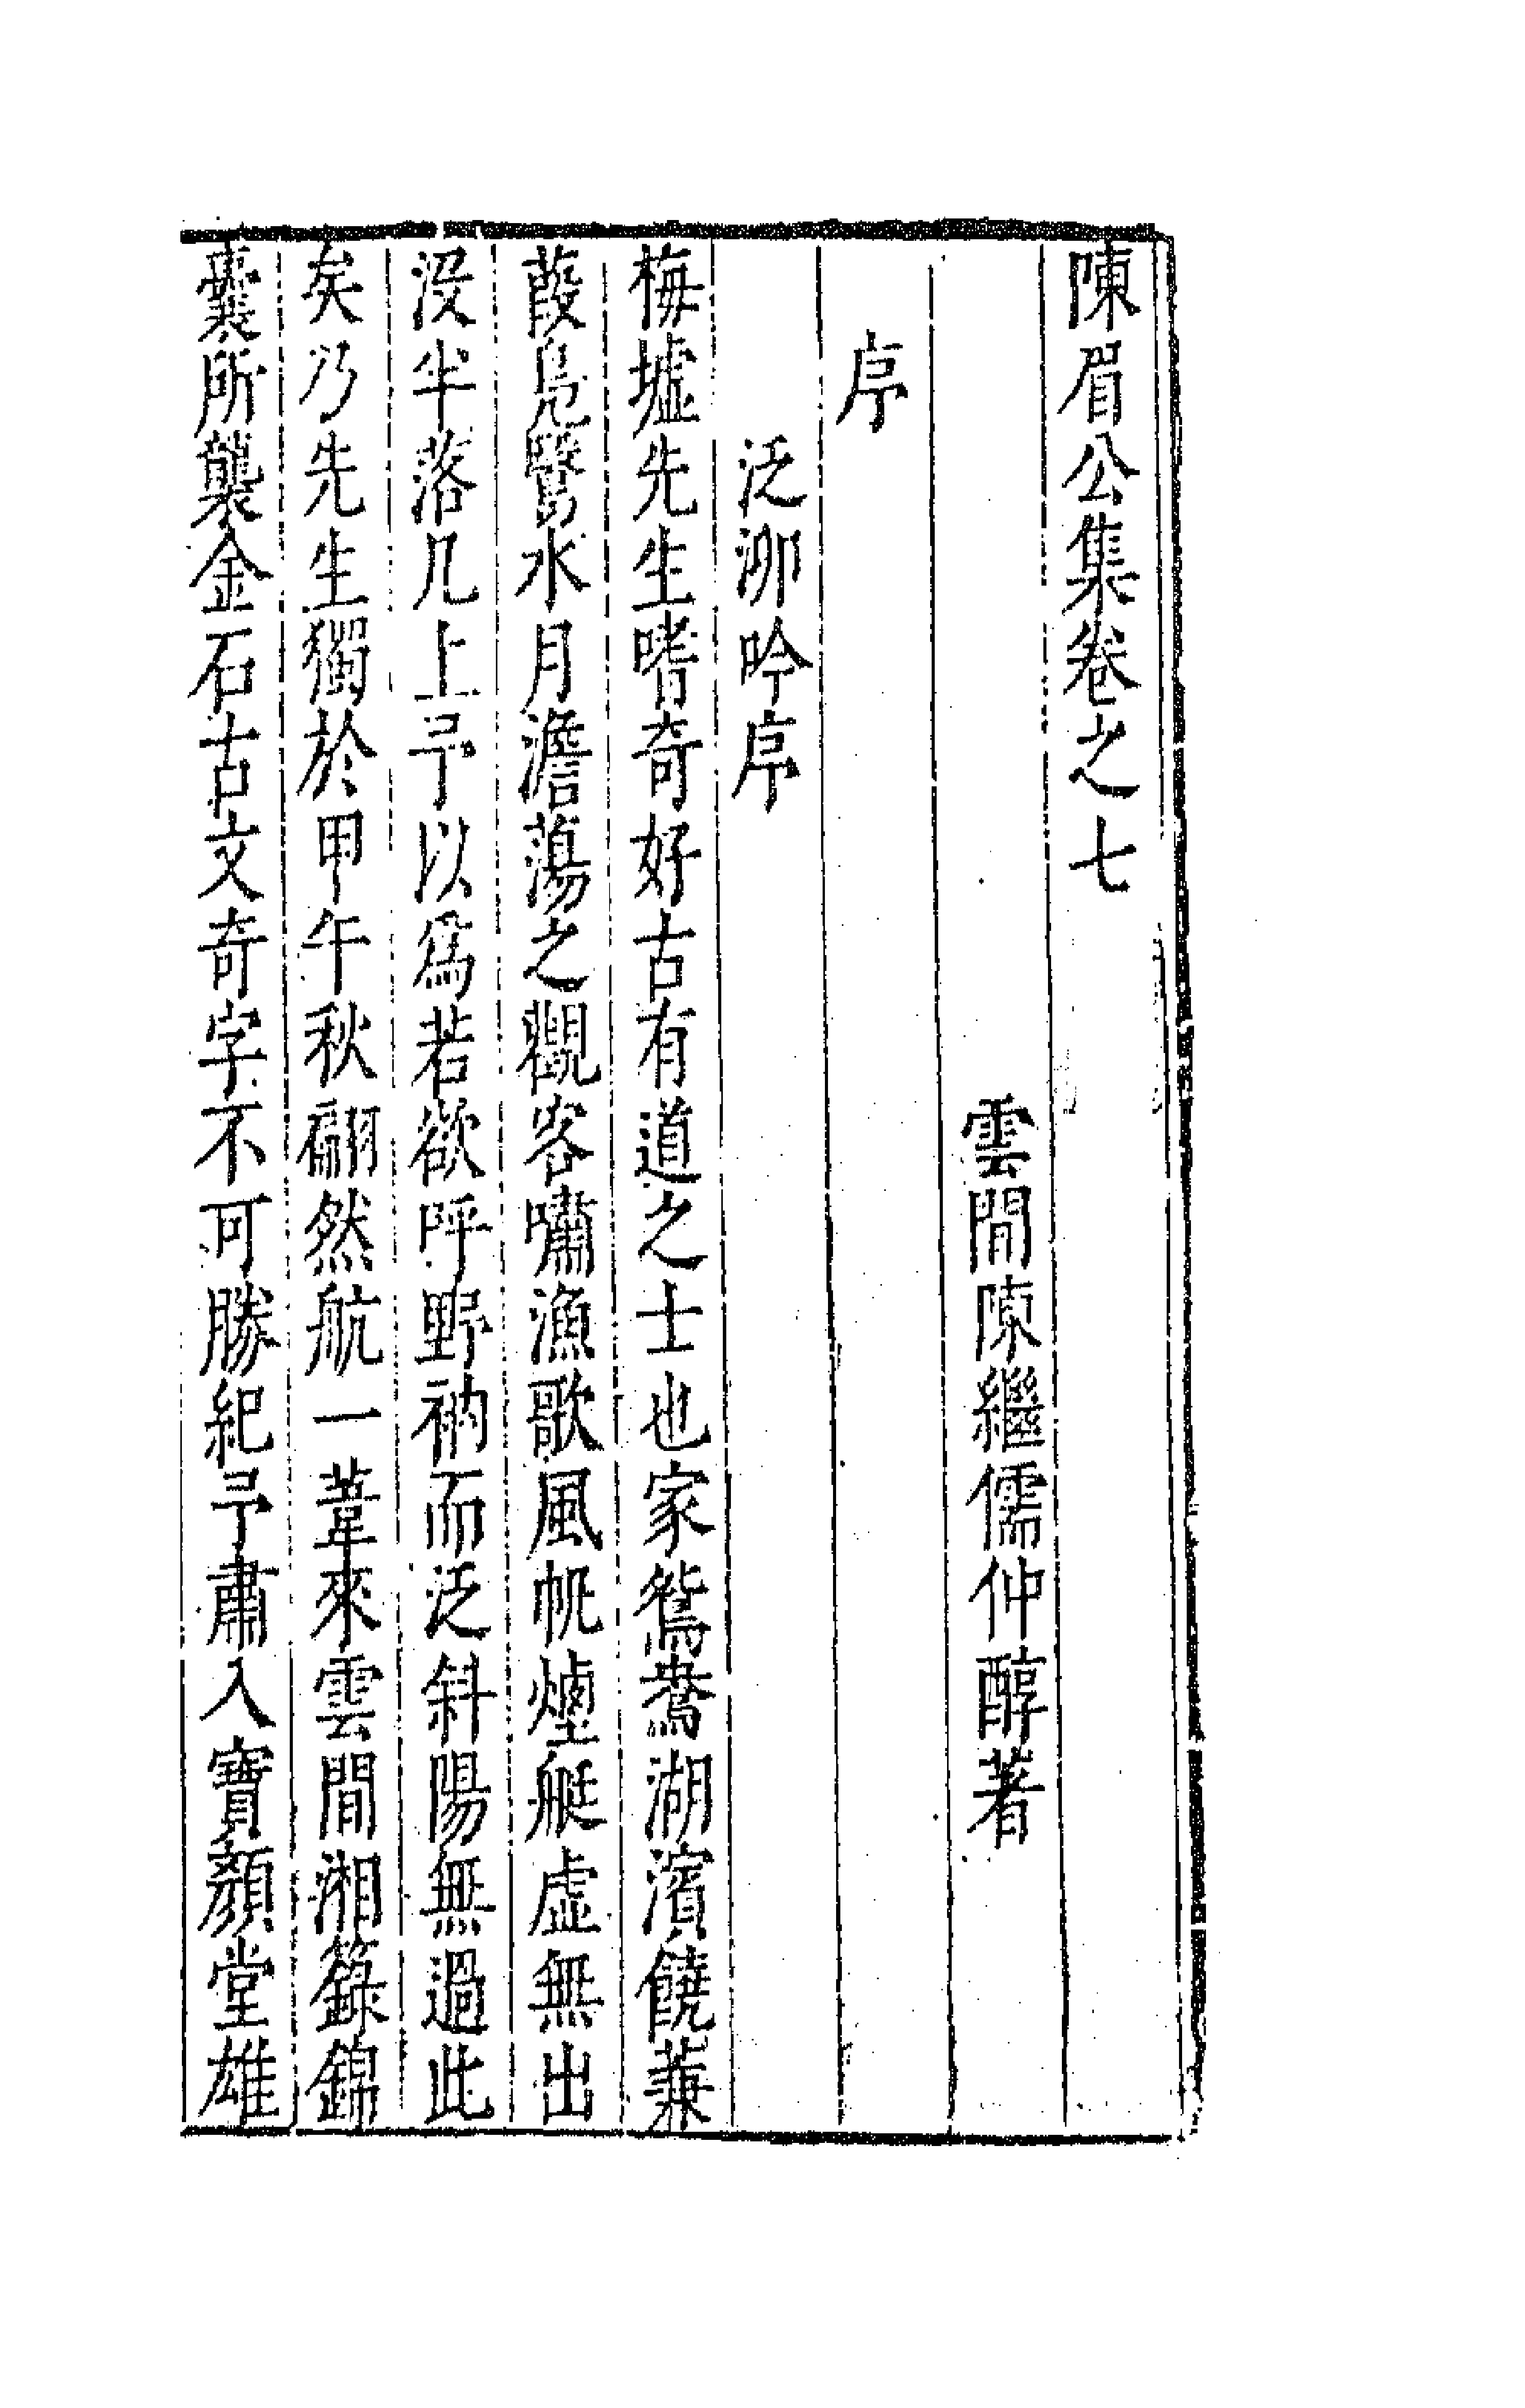 陳眉公集卷之七
雲間陳繼儒仲醇著
序
泛泖吟序
梅墟先生嗜奇好古有道之士也家鴛鴦湖濱饒蒹
葭鳧鷖水月澹蕩之觀客嘯漁歌風帆煙艇虛無出
沒半落几上予以爲若欲呼野衲而泛斜陽無過此
矣乃先生獨於甲午秋翩然航一葦來雲間湘籙錦
囊所襲金石古文奇字不可勝紀予肅入寶顏堂雄